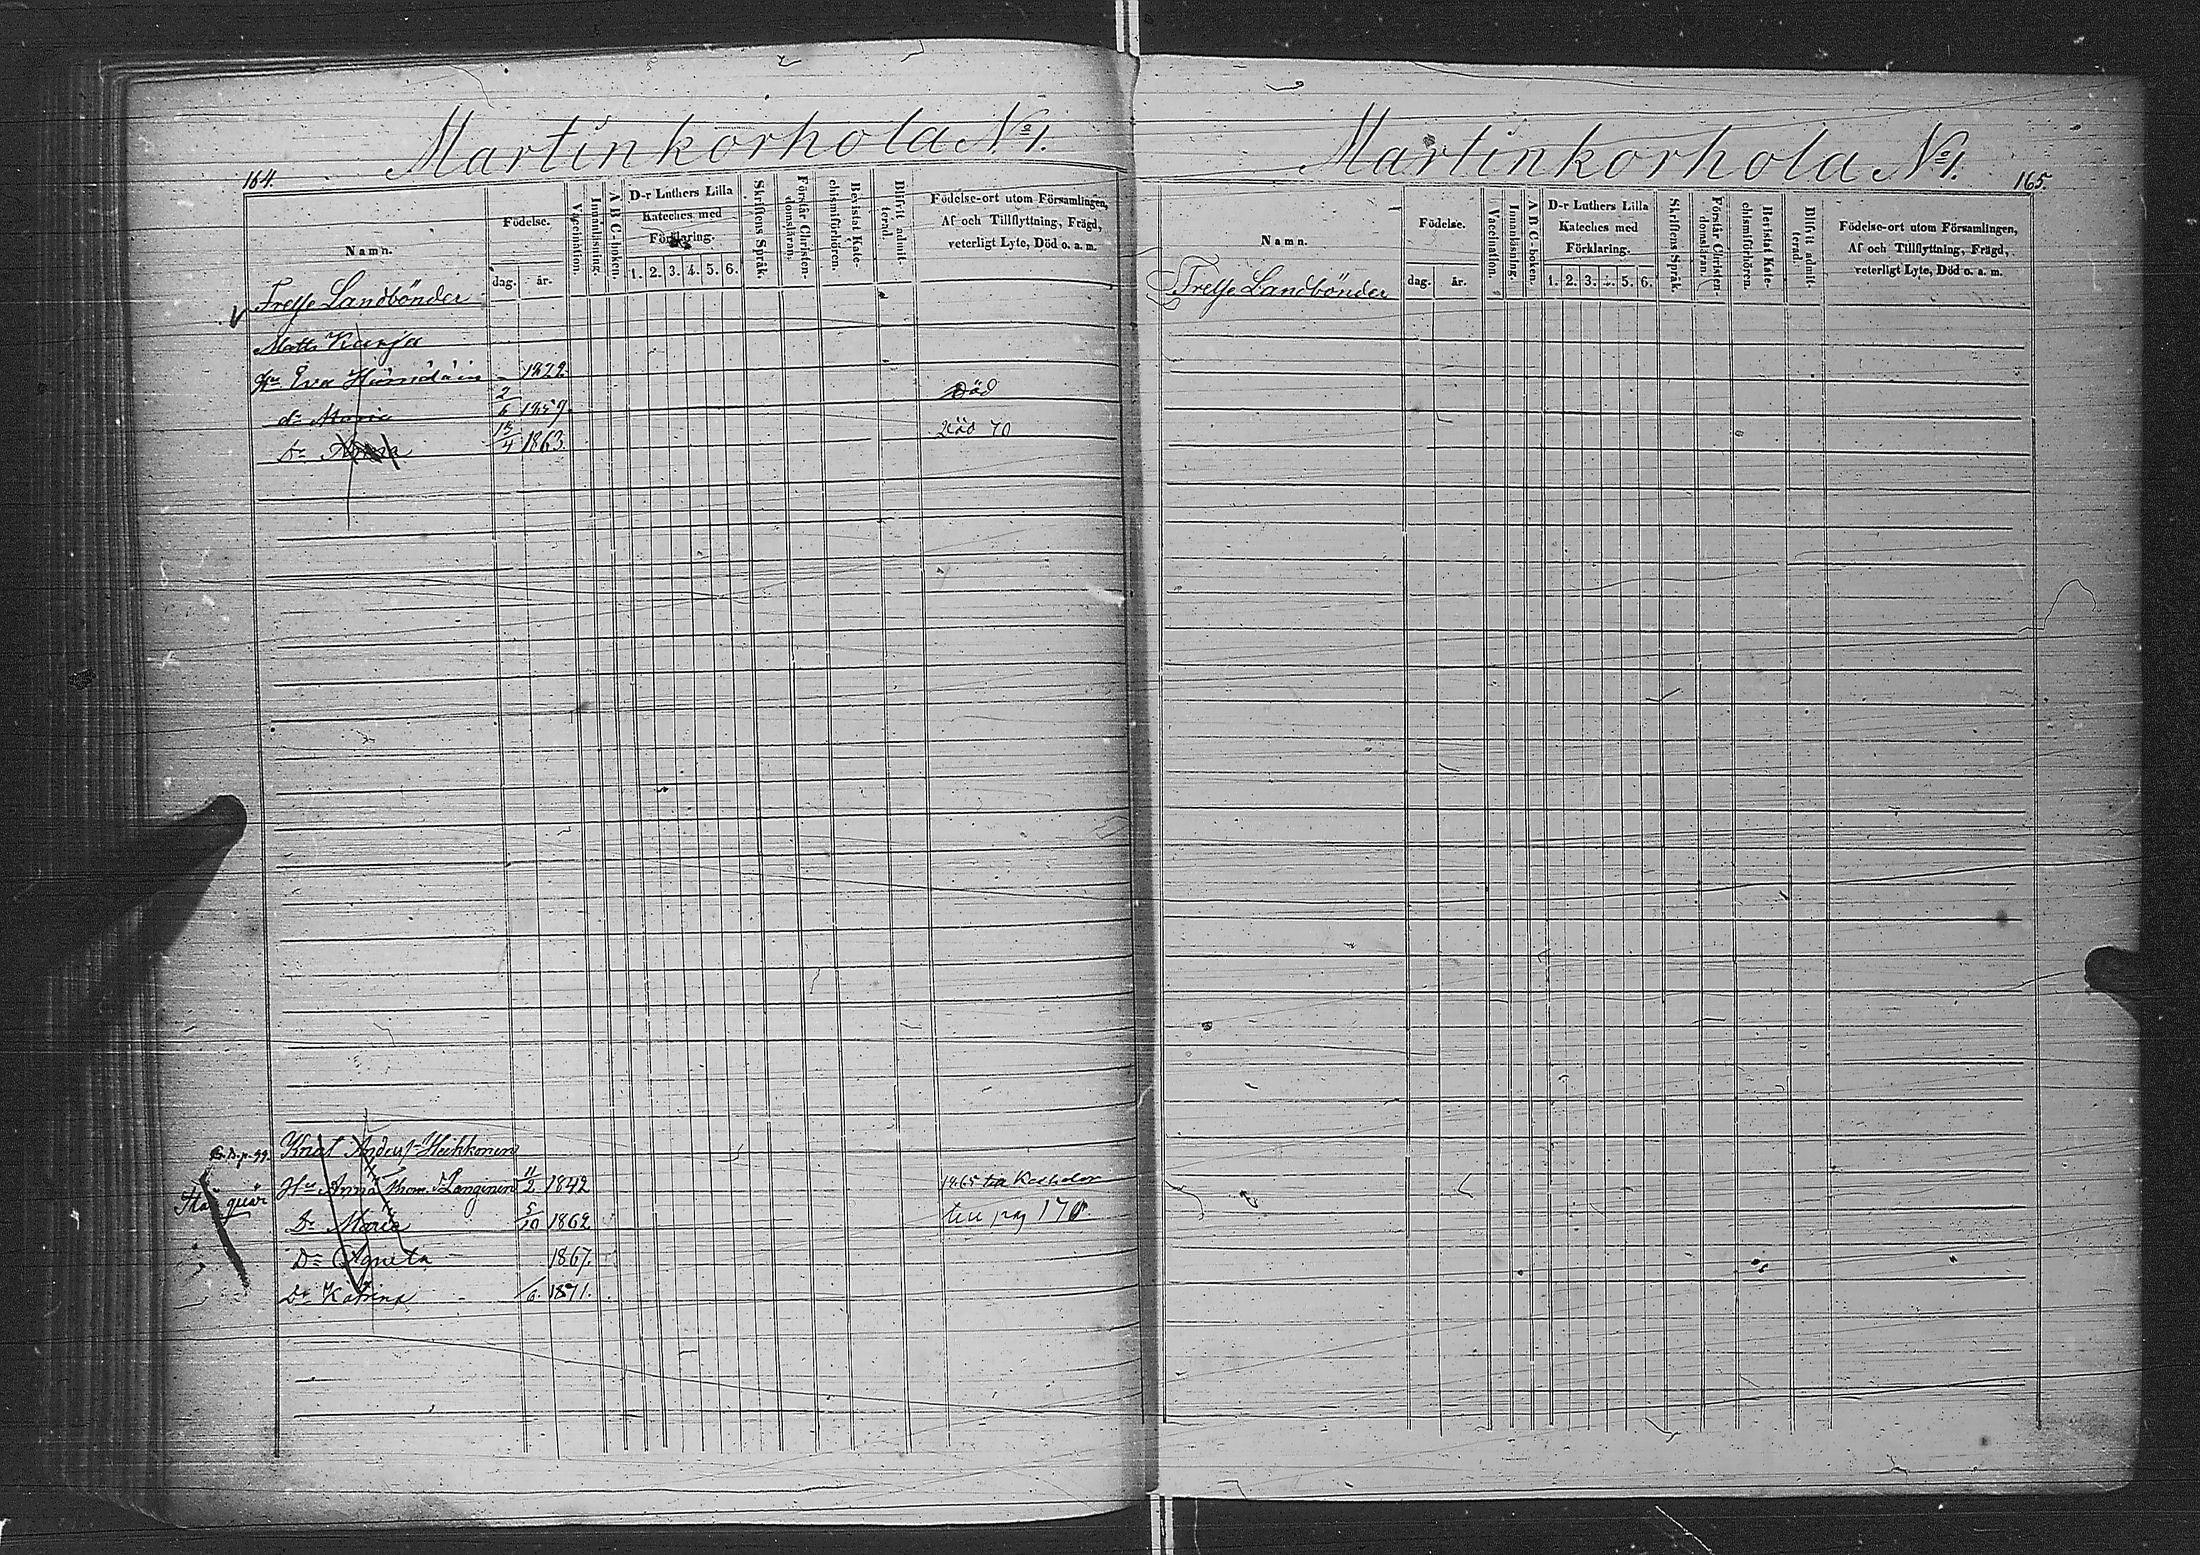 164.
Martinkorhola No 1.
Namn.
Födelse.
dag.
år.
Vaccination.
Innanläsning.
A B C-boken.
D-r Luthers Lilla
Kateches med
Förklaring.
1. 2. 3. 4. 5. 6.
Skriftens Språk.
Förstår Christen-
domsläran.
Bevistat Kate-
chismiförhören.
Blifvit admit-
terad.
Födelse-ort utom Församlingen,
Af och Tillflyttning, Frägd,
veterligt Lyte, Död o. a. m.
Frelse Landbönder
Matts
Hu Eva 1822
dr Maria 2/6 1859 Död
Dr Anna 13/4 1863. Död 70
Knut Anders Heikkonen
Hu Anna Thom. d Langinen 11/2 1842 1865
Dr Maria 5/10 1862 pag 170
Dr Agneta 1867.
Dr Katrina /6 1871.
Martinkorhola No 1.
165.
Namn.
Födelse.
dag.
år.
Vaccination.
Innanläsning.
A B C-boken.
D-r Luthers Lilla
Kateches med
Förklaring.
1. 2. 3. 4. 5. 6.
Skriftens Språk.
Förstår Christen-
domsläran.
Bevistat Kate-
chismiförhören.
Blifvit admit-
terad.
Födelse-ort utom Församlingen,
Af och Tillflyttning, Frägd,
veterligt Lyte, Död o. a. m.
Frelse Landbönder